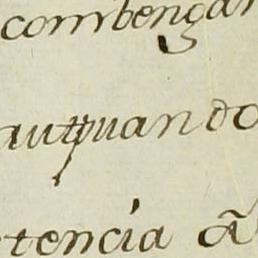 combengan
autquando
tencia ã